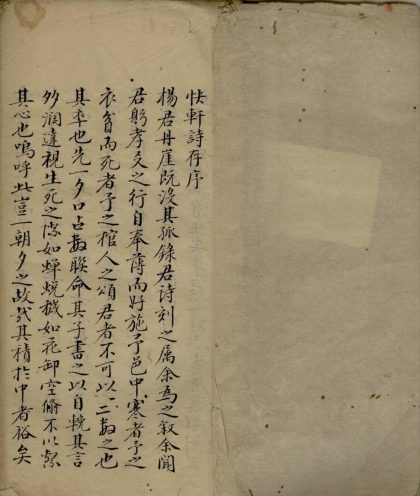 快軒詩存序
楊君丹崖既沒其孤錄君詩刻之属余為之叙余聞
君躬孝友之行自奉薄而好施予邑中寒者予之
衣貧而死者予之棺人之頌君者不可以一二數之也
其卒也先一夕口占數聯命其子書之以自輓其言
多濶達視生死之際如蟬蛻穢如花卸空脩不以絜
其心也嗚呼此豈一朝夕之故哉其積於中者裕矣